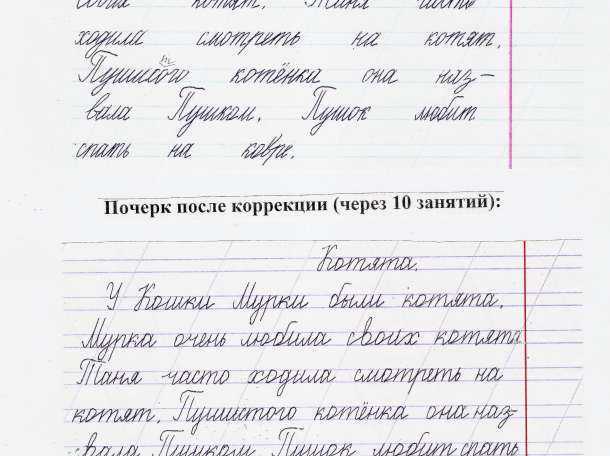 котят. Таня часто
ходила смотреть на котят.
Пушистого котёнка она наз-
вала Пушком. Пушок любит
спать на ковре.
Почерк после коррекции (через 10 занятий):
Котята.
У Кошки Мурки были котята.
Мурка очень любила своих котята
Таня часто ходила смотреть на
котят. Пушистого котёнка она наз-
вала Пушком. Пушок любит спать